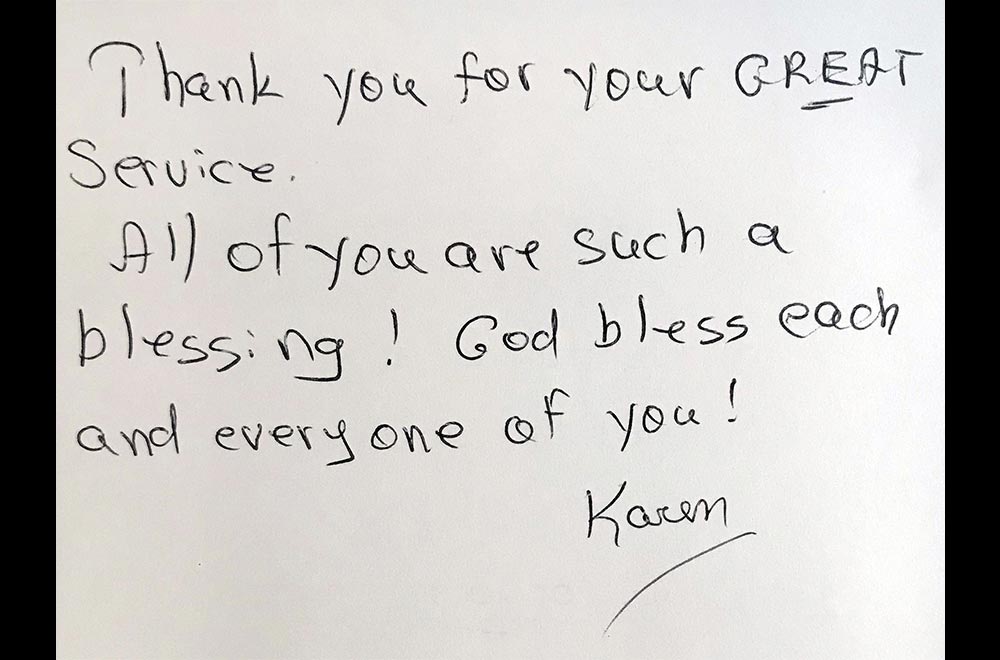 Thank you for your GREAT
Service.
All of you are such a
blessing! God bless each
and everyone of you!
Karen